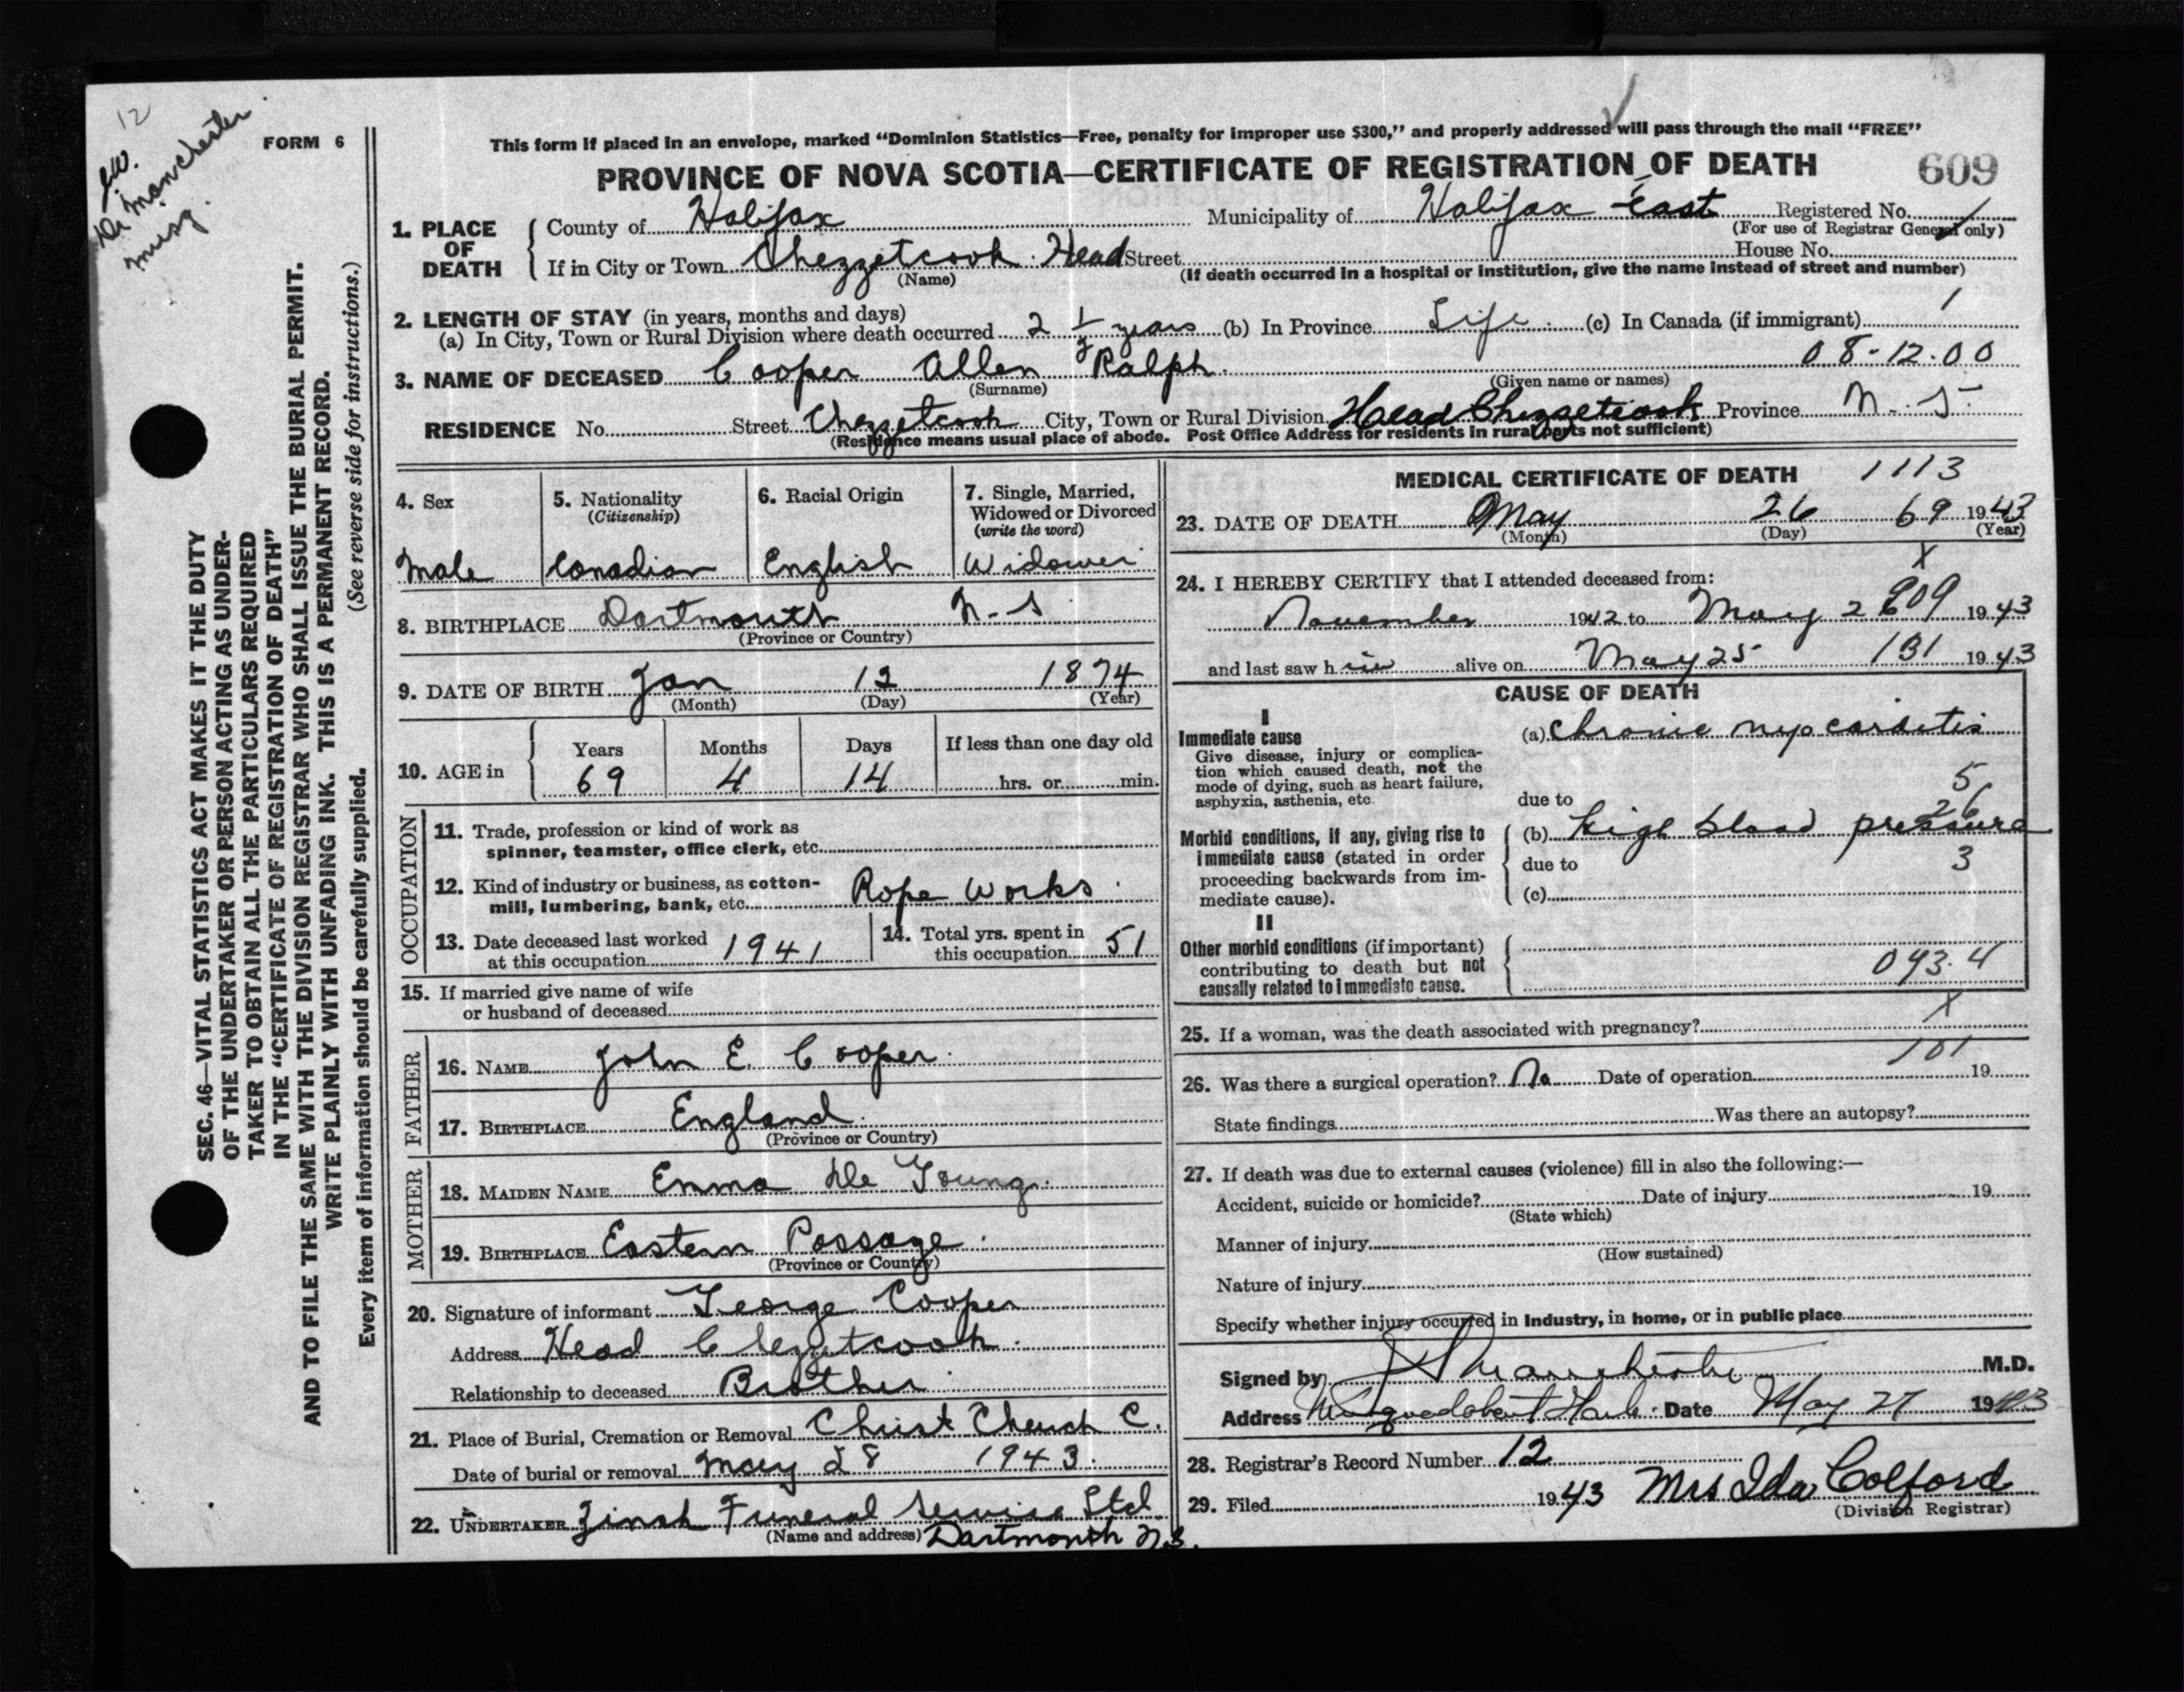 12
FORM 6
This form if placed in an envelope, marked "Dominion Statistics—Free, penalty for improper use $300," and properly addressed will pass through the mail "FREE"
PROVINCE OF NOVA SCOTIA—CERTIFICATE OF REGISTRATION OF DEATH 609
Dr Manchester
SEC. 46—VITAL STATISTICS ACT MAKES IT THE DUTY
OF THE UNDERTAKER OR PERSON ACTING AS UNDER-
TAKER TO OBTAIN ALL THE PARTICULARS REQUIRED
IN THE "CERTIFICATE OF REGISTRATION OF DEATH"
AND TO FILE THE SAME WITH THE DIVISION REGISTRAR WHO SHALL ISSUE THE BURIAL PERMIT.
WRITE PLAINLY WITH UNFADING INK. THIS IS A PERMANENT RECORD.
Every item of information should be carefully supplied. (See reverse side for instructions.)
1. PLACE OF DEATH
County of Halifax Municipality of Halifax East Registered No.
(For use of Registrar General only)
If in City or Town Chezzetcook Head Street House No.
(Name) (If death occurred in a hospital or institution, give the name instead of street and number)
2. LENGTH OF STAY (in years, months and days)
(a) In City, Town or Rural Division where death occurred 2 1/2 years (b) In Province Life (c) In Canada (if immigrant) 1
08-12.00
3. NAME OF DECEASED Cooper Allen Ralph
(Surname) (Given name or names)
RESIDENCE No. Street Chezzetcook City, Town or Rural Division Head Chezzetcook Province N. S.
(Residence means usual place of abode. Post Office Address for residents in rural parts not sufficient)
4. Sex
Male
5. Nationality
(Citizenship)
Canadian
6. Racial Origin
English
7. Single, Married,
Widowed or Divorced
(write the word)
Widower
8. BIRTHPLACE Dartmouth N-S
(Province or Country)
9. DATE OF BIRTH Jan 12 1874
(Month) (Day) (Year)
10. AGE in
Years Months Days If less than one day old
69 4 14 hrs. or min.
OCCUPATION
11. Trade, profession or kind of work as
spinner, teamster, office clerk, etc.
12. Kind of industry or business, as cotton-
mill, lumbering, bank, etc. Rope Works
13. Date deceased last worked
at this occupation 1941
14. Total yrs. spent in
this occupation 51
15. If married give name of wife
or husband of deceased
FATHER
16. NAME John E. Cooper
17. BIRTHPLACE England
(Province or Country)
MOTHER
18. MAIDEN NAME Emma De Young
19. BIRTHPLACE Eastern Passage
(Province or Country)
20. Signature of informant George Cooper
Address Head Chezzetcook
Relationship to deceased Brother
21. Place of Burial, Cremation or Removal Christ Church C.
Date of burial or removal May 28 1943
22. UNDERTAKER Zinck Funeral Service Ltd
(Name and address) Dartmouth N.S.
MEDICAL CERTIFICATE OF DEATH 1113
23. DATE OF DEATH May 26 69 1943
(Month) (Day) (Year)
X
24. I HEREBY CERTIFY that I attended deceased from:
November 1942 to May 2 609 1943
and last saw him alive on May 25 131 1943
CAUSE OF DEATH
I
Immediate cause
Give disease, injury or complica-
tion which caused death, not the
mode of dying, such as heart failure,
asphyxia, asthenia, etc.
(a) Chronic myocarditis
5
due to
26
Morbid conditions, if any, giving rise to
immediate cause (stated in order
proceeding backwards from im-
mediate cause).
(b) high blood pressure
due to 3
(c)
II
Other morbid conditions (if important)
contributing to death but not
causally related to immediate cause.
093.4
X
25. If a woman, was the death associated with pregnancy?
101
26. Was there a surgical operation? No Date of operation 19
State findings Was there an autopsy?
27. If death was due to external causes (violence) fill in also the following:—
Accident, suicide or homicide? Date of injury 19
(State which)
Manner of injury
(How sustained)
Nature of injury
Specify whether injury occurred in Industry, in home, or in public place
Signed by Manchester M.D.
Address Musquodoboit Harb. Date May 27 1943
28. Registrar's Record Number 12
29. Filed 1943 Mrs Ida Colford
(Division Registrar)